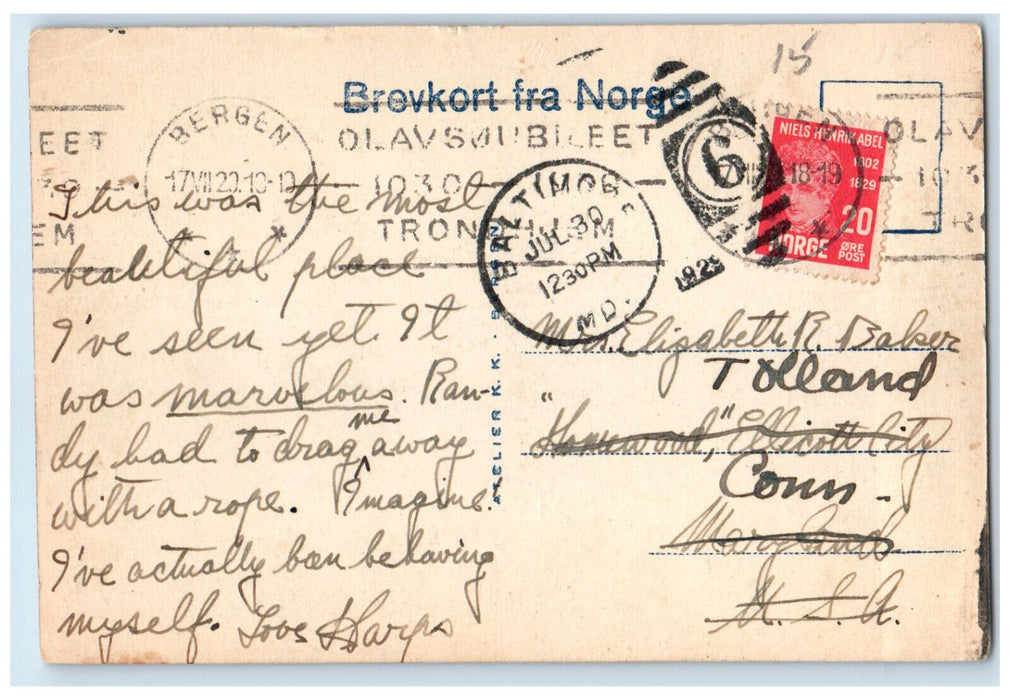 15
Brevkort fra Norge
BERGEN
17 VII 29.18-19
OLAVSJUBILEET
1030
TRONDHJEM
EET
EM
OLAV
TR
6
BALTIMORE
JUL 30
1230PM
MD.
1929
18-19
NIELS HENRIK ABEL
1802
1829
20
NORGE
ØRE
POST
This was the most
beautiful place
I've seen yet. It
was marvelous. Ran-
dy had to drag me away
with a rope. Imagine.
I've actually been behaving
myself. Love Harps
ATELIER K. K.
Mrs. Elizabeth R. Baker
Tolland
"Homewood," Ellicott City
Conn -
Maryland
U. S. A.